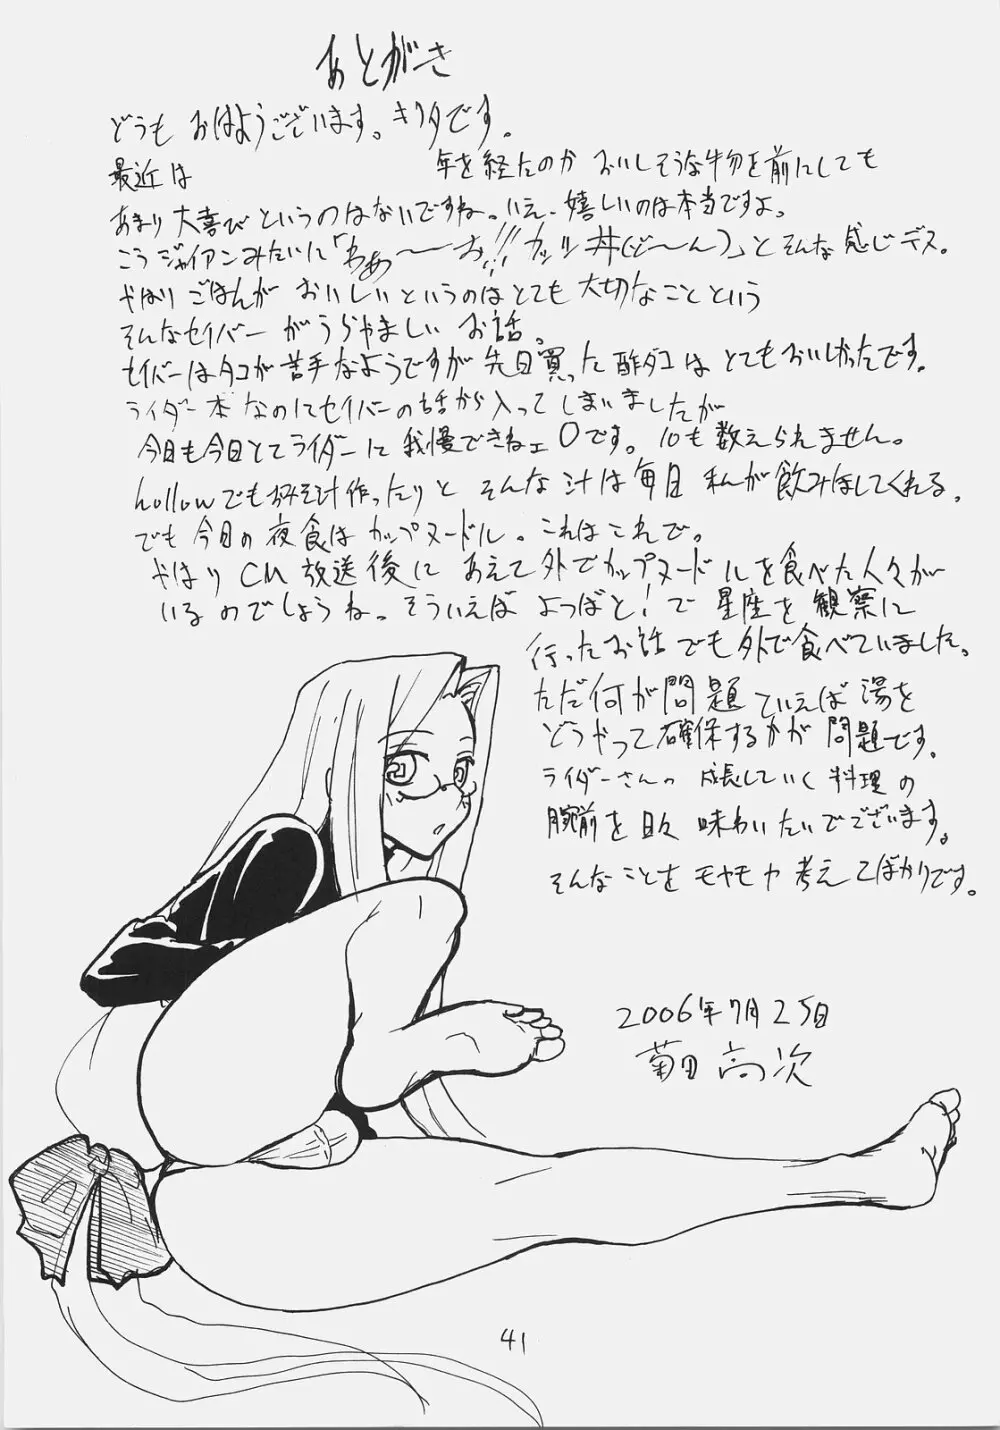 あとがき
どうも おはようございます。キクタです。
最近は 年を経たのか おいしそうな物を前にしても
あまり大喜びというのはないですね。いえ、嬉しいのは本当ですよ。
こうジャイアンみたいに「わあ〜〜お!!カツ丼(ど〜ん)」とそんな感じデス。
やはりごはんが おいしいというのはとても大切なことという
そんなセイバーがうらやましい お話。
セイバーはタコが苦手なようですが先日買った酢ダコはとてもおいしかったです。
ライダー本なのにセイバーの話から入ってしまいましたが
今日も今日とてライダーに我慢できねェOです。10も数えられません。
hollowでもみそ汁作ったりと そんな汁は毎日 私が飲みほしてくれる。
でも今日の夜食はカップヌードル。これはこれで。
やはりCM放送後に あえて外でカップヌードルを食べた人々が
いるのでしょうね。そういえば よつばと!で星座を観察に
行ったお話でも外で食べていました。
ただ何が問題ていえば湯を
どうやって確保するかが問題です。
ライダーさんの成長していく料理の
腕前を日々味わいたいでございます。
そんなことをモヤモヤ考えてばかりです。
2006年7月25日
菊田高次
41